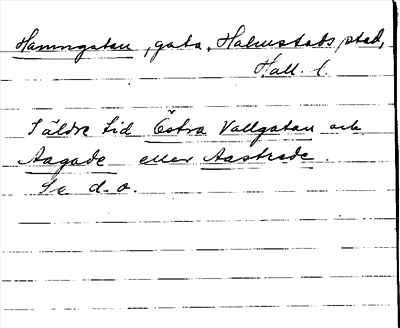 Hamngatan, gata, Halmstads stad,
Hall. l.
I äldre tid Östra Vallgatan och
Aagade eller Aastrede.
Se d.o.